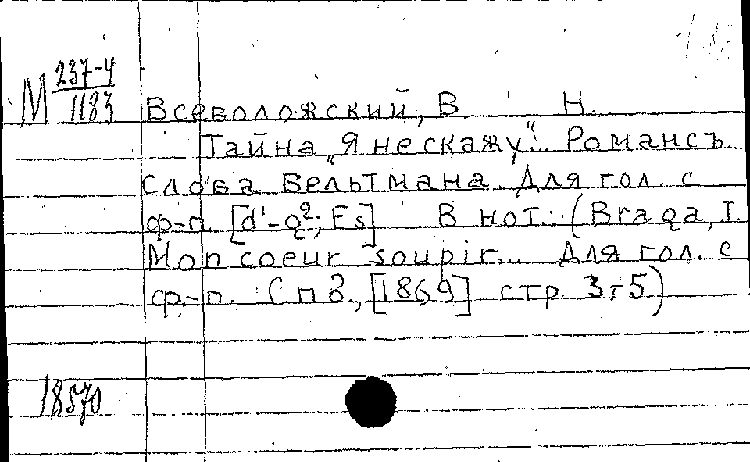 М 237-4
1183
Всеволожский, В. Н.
Тайна „Я не скажу". Романсъ
Слова Вельтмана. Для гол. с
ф-п. [d¹-g²; Es] В нот.: (Braga, I.
Mon coeur soupir... Для гол. с
ф-п. Спб., [1869] стр. 3-5)
18570